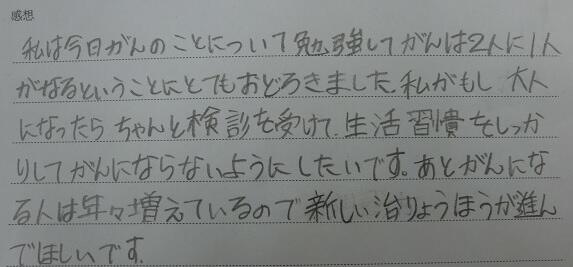 感想
私は今日がんのことについて勉強してがんは2人に1人
がなるということにとてもおどろきました。私がもし大人
になったらちゃんと検診を受けて、生活習慣をしっか
りしてがんにならないようにしたいです。あとがんにな
る人は年々増えているので新しい治りょうほうが進ん
でほしいです。